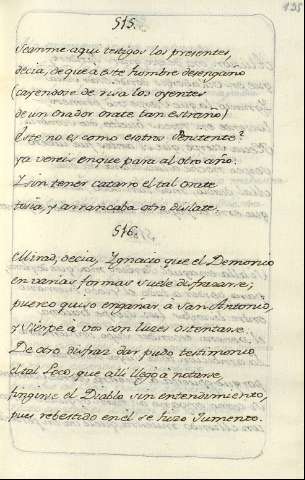 135
515.
Seanme aqui testigos los presentes,
decia, de que à este hombre desengaño
(cayendose de risa los oyentes
de un Orador orate tan estraño)
Este no es como esotros Penitentes?
ya vereis en que para al otro año:
Y sin tener catarro el tal Orate
tosia, y arrancaba otro dislate.
516.
Mirad, decia, Ygnacio que el Demonio
en varias formas suele disfrazarse;
puerco quiso engañar à San Antonio,
y Sierpe à vos con luces ostentarse.
De otro disfraz dar pudo testimonio
el tal Loco, que alli llegò à notarse
fingirse el Diablo sin entendimiento,
pues rebestido en el se hizo Jumento.